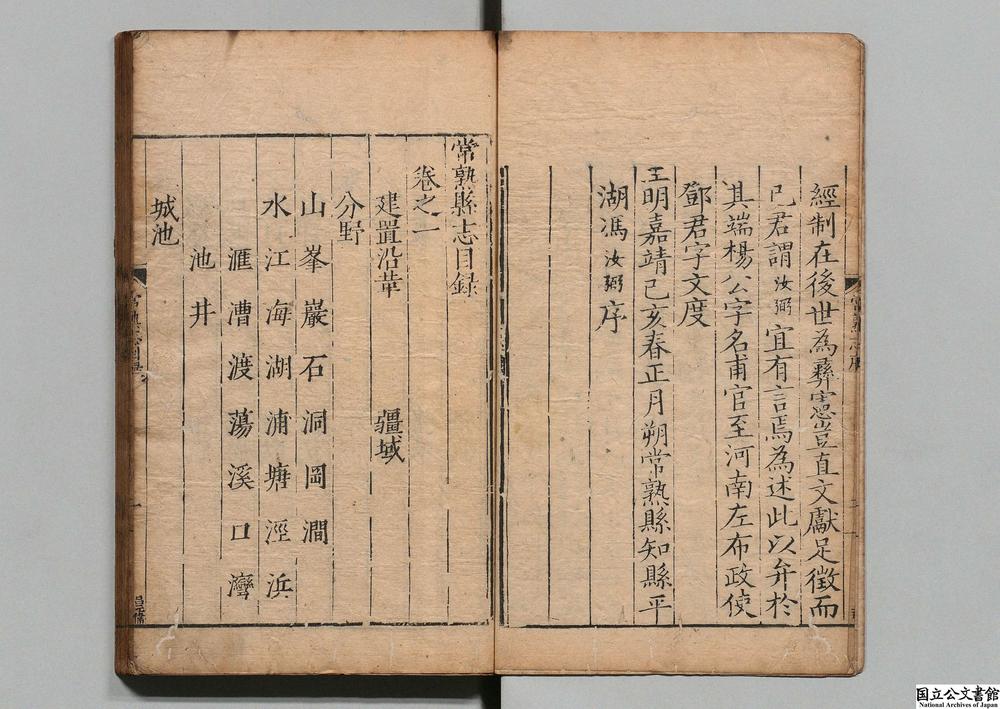 經制在後世為彞憲豈直文獻足徵而
已君謂汝弼宜有言焉為述此以弁於
其端楊公字名甫官至河南左布政使
鄧君字文度
王明嘉靖己亥春正月朔常熟縣知縣平
湖馮汝弼序
常熟縣志目録
卷之一
建置沿革 疆域
分野
山 峯 巖 石 洞 岡 澗
水 江 海 湖 浦 塘 涇 浜
滙 漕 渡 蕩 溪 口 灣
池 井
城池
国立公文書館
National Archives of Japan